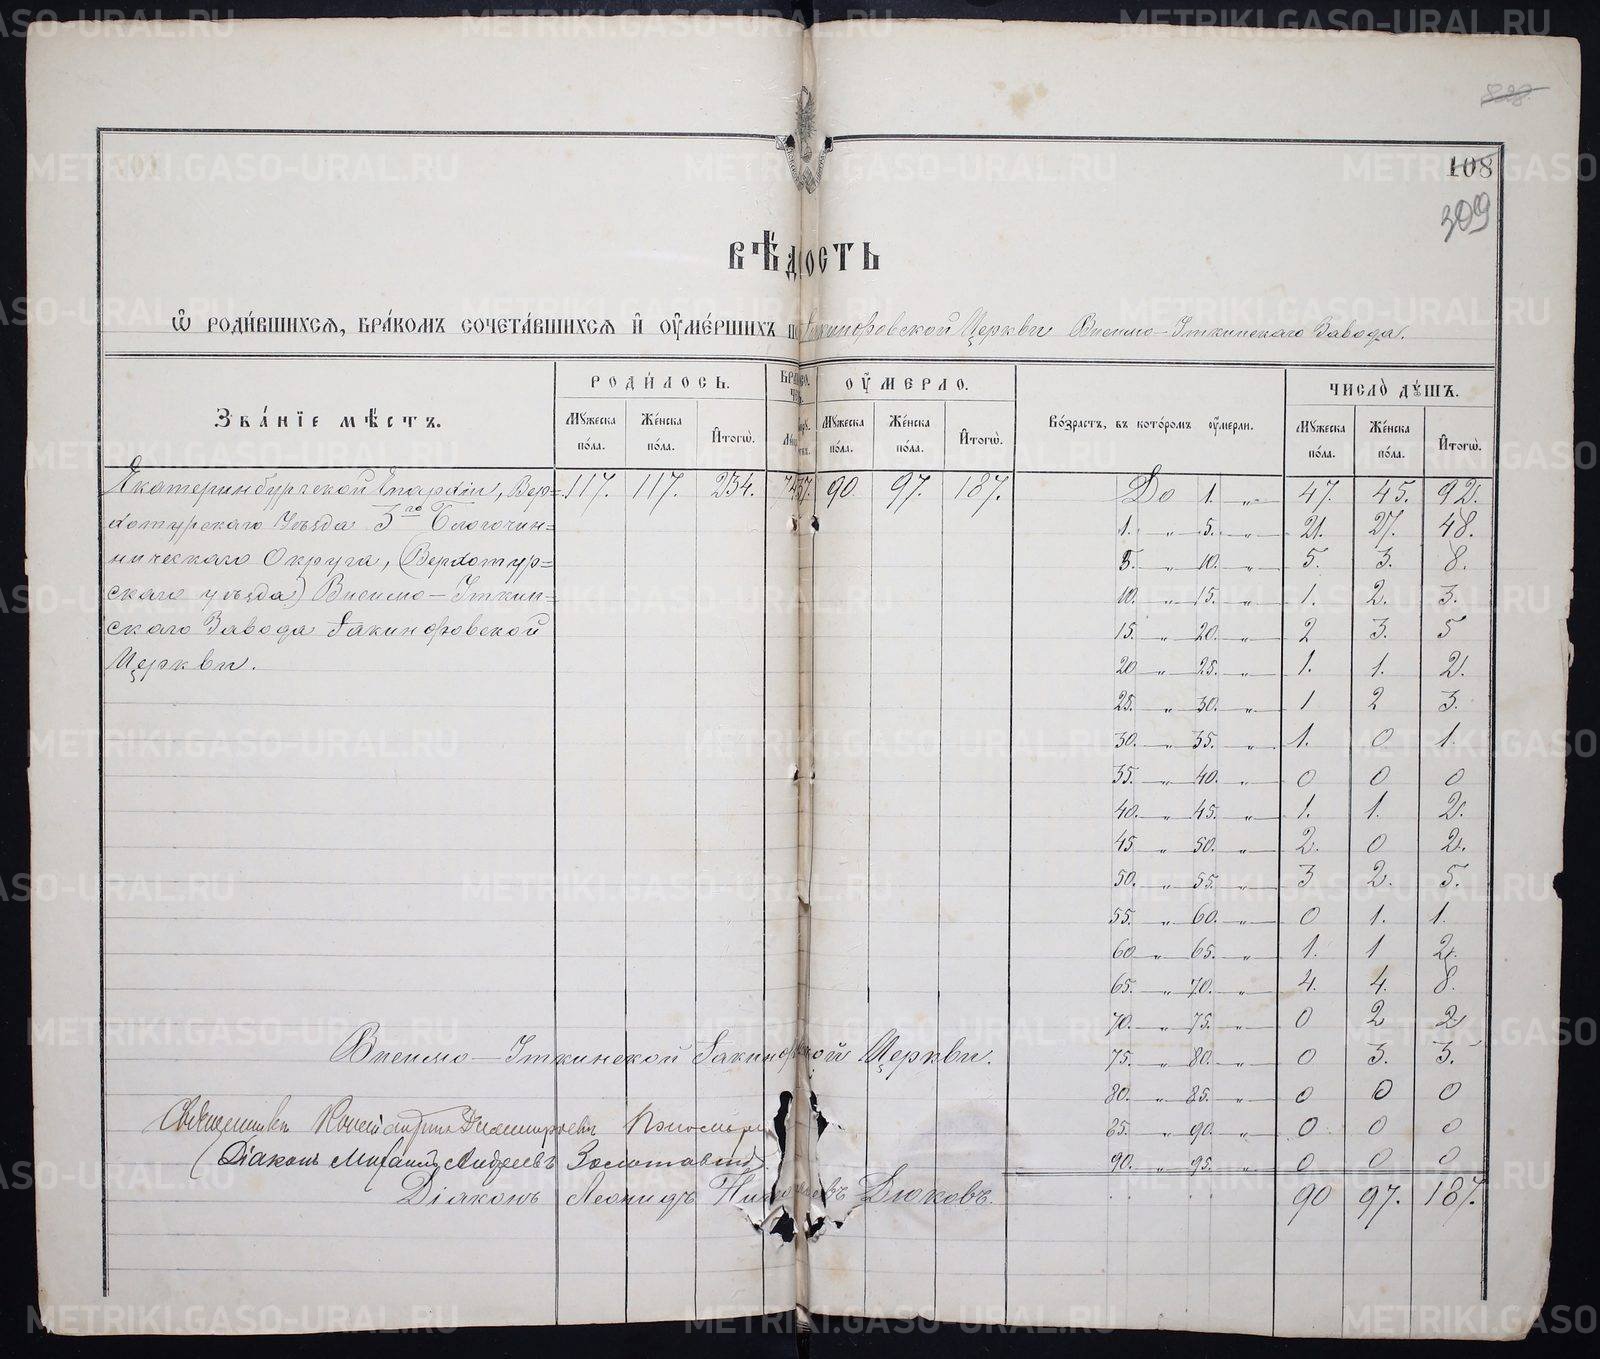 108
309
ВѢДОСТЬ
Ѡ РОДИВШИХСѦ, БРАКОМЪ СОЧЕТАВШИХСѦ И ОУМЕРШИХЪ по Іакинфовской Церкви Висимо-Уткинскаго Завода.
ЗВАНІЕ МѢСТЪ. РОДИЛОСЬ. ОУМЕРЛО. Возрастъ, въ которомъ оумерли. ЧИСЛО ДУШЪ.
Мужеска пола. Женска пола. Итогѡ. Мужеска пола. Женска пола. Итогѡ. Мужеска пола. Женска пола. Итогѡ.
Екатеринбургской Епархіи, Вер= 117. 117. 234. 90. 97. 187. До 1. " 47. 45. 92.
хотурскаго Уѣзда 3го Благочин= 1. " 5. " 21. 27. 48.
ническаго Округа, (Верхотур= 5. " 10. " 5. 3. 8.
скаго уѣзда) Висимо-Уткин= 10. " 15. " 1. 2. 3.
скаго Завода Іакинфовской 15. " 20. " 2 3. 5
Церкви. 20 " 25. " 1. 1. 2.
25. " 30. " 1 2 3.
30. " 35. " 1. 0 1.
35. " 40. " 0 0 0
40. " 45. " 1. 1. 2.
45 " 50. " 2. 0 2.
50. " 55. " 3 2. 5.
55. " 60. " 0 1. 1.
60 " 65. " 1. 1 2.
65. " 70. " 4. 4. 8.
70. " 75. " 0 2 2
Висимо-Уткинской Іакинфовской Церкви. 75. " 80. " 0 3. 3.
80. " 85. " 0 0 0
Священникъ 85. " 90. " 0 0 0
Діаконъ Михаилъ Андреевъ Золотавинъ 90. " 95. " 0 0 0
Діаконъ Леонидъ Дюковъ. 90 97. 187.
METRIKI.GASO-URAL.RU